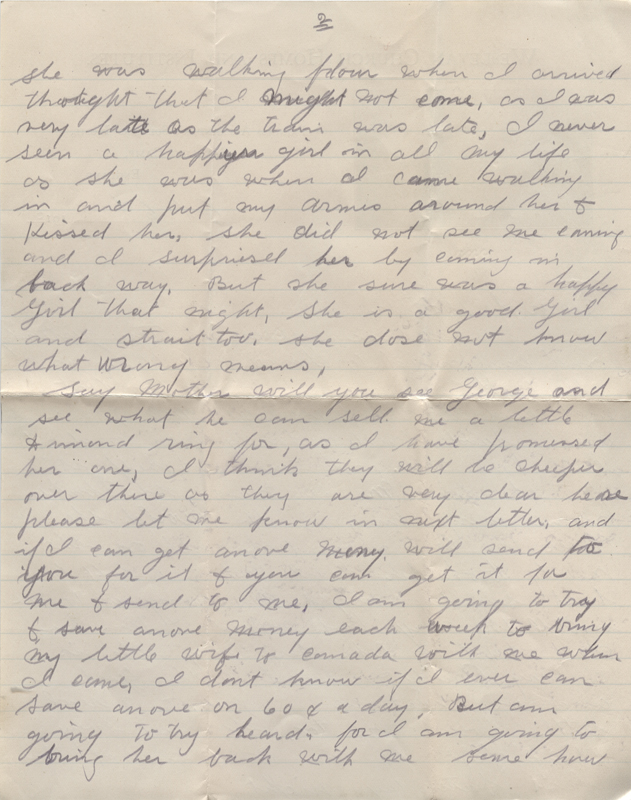 2
she was walking flour when I arrived
thought that I might not come, as I was
very late as the train was late, I never
seen a happier girl in all my life
as she was when I came walking
in and put my armes around her &
Kissed her, she did not see me coming
and I surprised her by coming in
back way. But she sure was a happy
Girl that night, She is a good Girl
and strait too. she dose not know
what wrong means,
Say Mother will you see George and
see what he can sell me a little
dimond ring for, as I have promessed
her one, I think they will be cheeper
over there as they are very dear here
please let me know in next letter, and
if I can get anove money will send to
you for it & you can get it for
me & send to me, I am going to try
& save anove money each week to bring
my little wife to canada with me when
I come, I dont know if I ever can
save anove on 60¢ a day. But am
going to try heard, for I am going to
bring her back with me some how